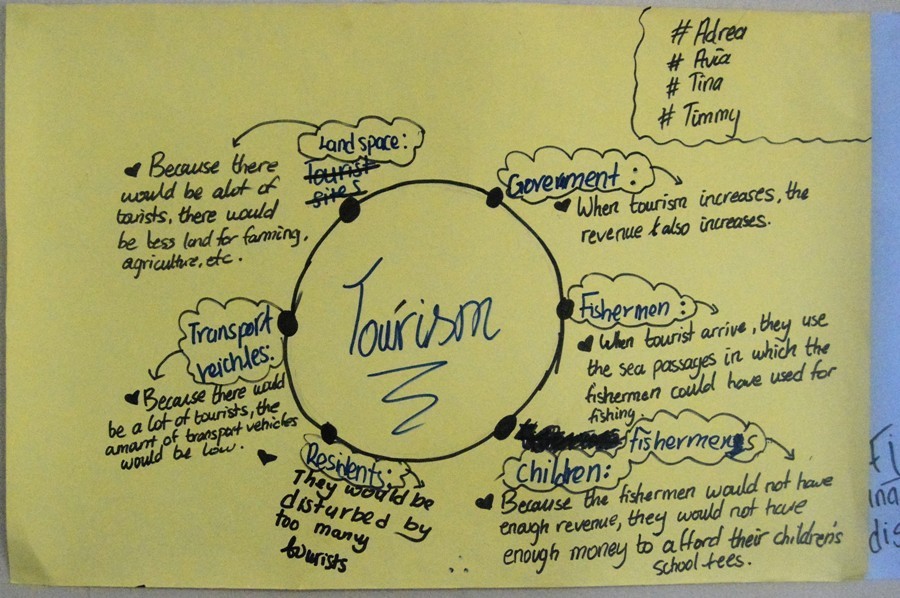 # Adrea
# Avia
# Tina
# Timmy
Land space:
Tourist
sites
Because there
would be alot of
tourists, there would
be less land for farming,
agriculture, etc.
Government:
When tourism increases, the
revenue also increases.
Tourism
Fishermen:
When tourist arrive, they use
the sea passages in which the
fishermen could have used for
fishing.
fishermen's
children:
Because the fishermen would not have
enough revenue, they would not have
enough money to afford their children's
school fees.
Residents:
They would be
disturbed by
too many
tourists
Transport
veichles:
Because there would
be a lot of tourists, the
amount of transport vehicles
would be low.